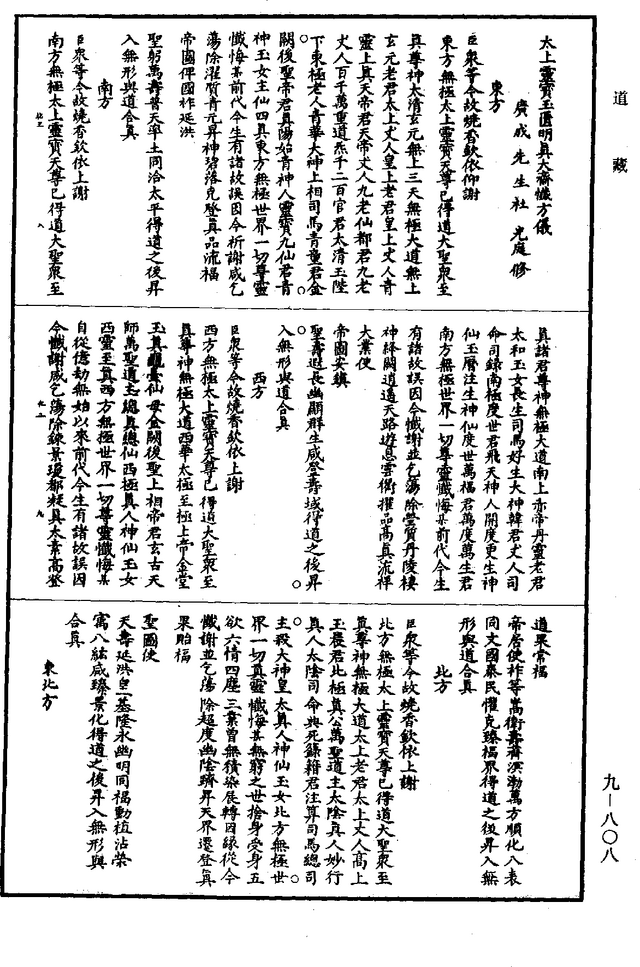 道藏
太上靈寶玉匱明真大齋懺方儀
廣成先生杜光庭修
東方
臣衆等今故燒香歸依仰謝
東方無極太上靈寶天尊已得道大聖衆至
真尊神太清玄元無上三天無極大道無上
玄元老君太上丈人皇上老君皇上丈人青
靈上真天帝君天帝丈人九老仙都君九老
丈人百千萬重道炁千二百官君太清玉陛
下東極老人青華大神上相司馬青童君金
闕後聖帝君真陽始青神人靈寶九仙君青
神玉女主仙四真東方無極世界一切尊靈
懺悔某前代今生有諸故誤因今祈謝咸乞
蕩除濯質青元昇神碧落克登真品流福
帝國俾國祚延洪
聖躬萬壽普天率土同洽太平得道之後昇
入無形與道合真
南方
臣衆等今故燒香歸依上謝
南方無極太上靈寶天尊已得道大聖衆至
真諸君尊神無極大道南上赤帝丹靈老君
太和玉女長生司馬好生大神韓君丈人司
命司錄南極度世君飛天神人開度更生神
仙玉曆注生神仙度世萬福君萬度萬生君
南方無極世界一切尊靈懺悔某前代今生
有諸故誤因今懺謝並乞蕩除瑩質丹陵棲
神絳闕道通天路遊息雲衢擢品高真流祥
大業使
帝圖安鎮
聖壽遐長幽顯群生咸登壽域得道之後昇
入無形與道合真
西方
臣衆等今故燒香歸依上謝
西方無極太上靈寶天尊已得道大聖衆至
真尊神無極大道西華太極至極上帝金堂
玉真龜臺仙母金闕後聖上相帝君玄古天
師萬聖道主總真總仙西極真人神仙玉女
西靈至真西方無極世界一切尊靈懺悔某
自從億劫無始以來前代今生有諸故誤因
今懺謝咸乞蕩除鍊景瓊都凝真太素高登
道果常福
帝居使祚等嵩衡壽齊溟渤萬方順化八表
同文國泰民懽克臻福界得道之後昇入無
形與道合真
北方
臣衆等今故燒香歸依上謝
北方無極太上靈寶天尊已得道大聖衆至
真尊神無極大道太上老君太上丈人高上
玉晨君北極真公萬聖道主太陰真人妙行
真人太陰司命典死錄籍君注算司馬總司
主殺大神皇太真人神仙玉女北方無極世
界一切真靈懺悔某無窮之世捨身受身五
欲六情四塵三業曾無積染展轉因緣從今
懺謝並乞蕩除超度幽陰躋昇天界還登真
果貽福
聖圖使
天壽延洪皇基隆永幽明同福動植沾榮
寓八紘咸臻景化得道之後昇入無形與
合真
東北方
九－八〇八